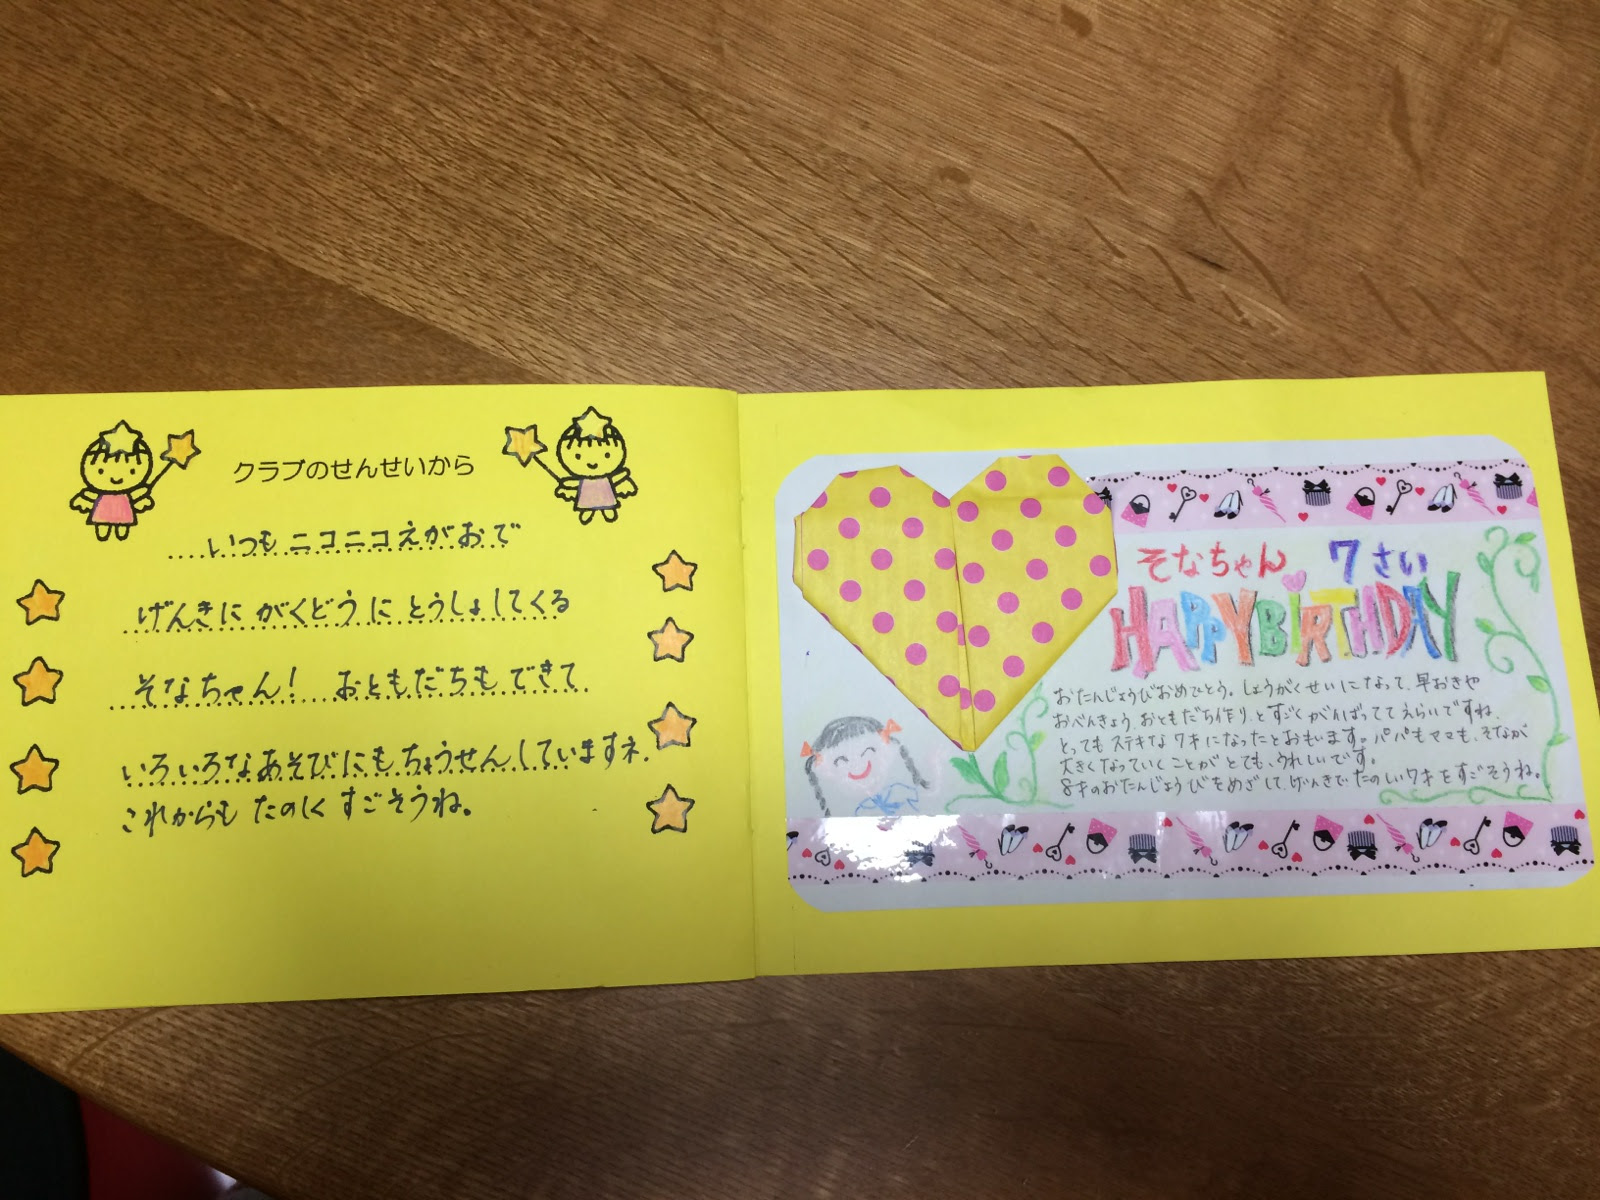 クラブのせんせいから
いつも ニコニコえがおで
げんきに がくどうに とうしょしてくる
そなちゃん! おともだちも できて
いろいろなあそびにもちょうせんしていますネ.
これからも たのしく すごそうね。
そなちゃん 7さい
HAPPYBiRTHDAY
おたんじょうびおめでとう。しょうがくせいになって、早おきや
おべんきょう おともだち作り、とすごくがんばっててえらいですね、
とってもステキな7才になったとおもいます。パパもママも、そなが
大きくなっていくことがとても、うれしいです。
8才のおたんじょうびをめざして、げんきで、たのしい7才をすごそうね。